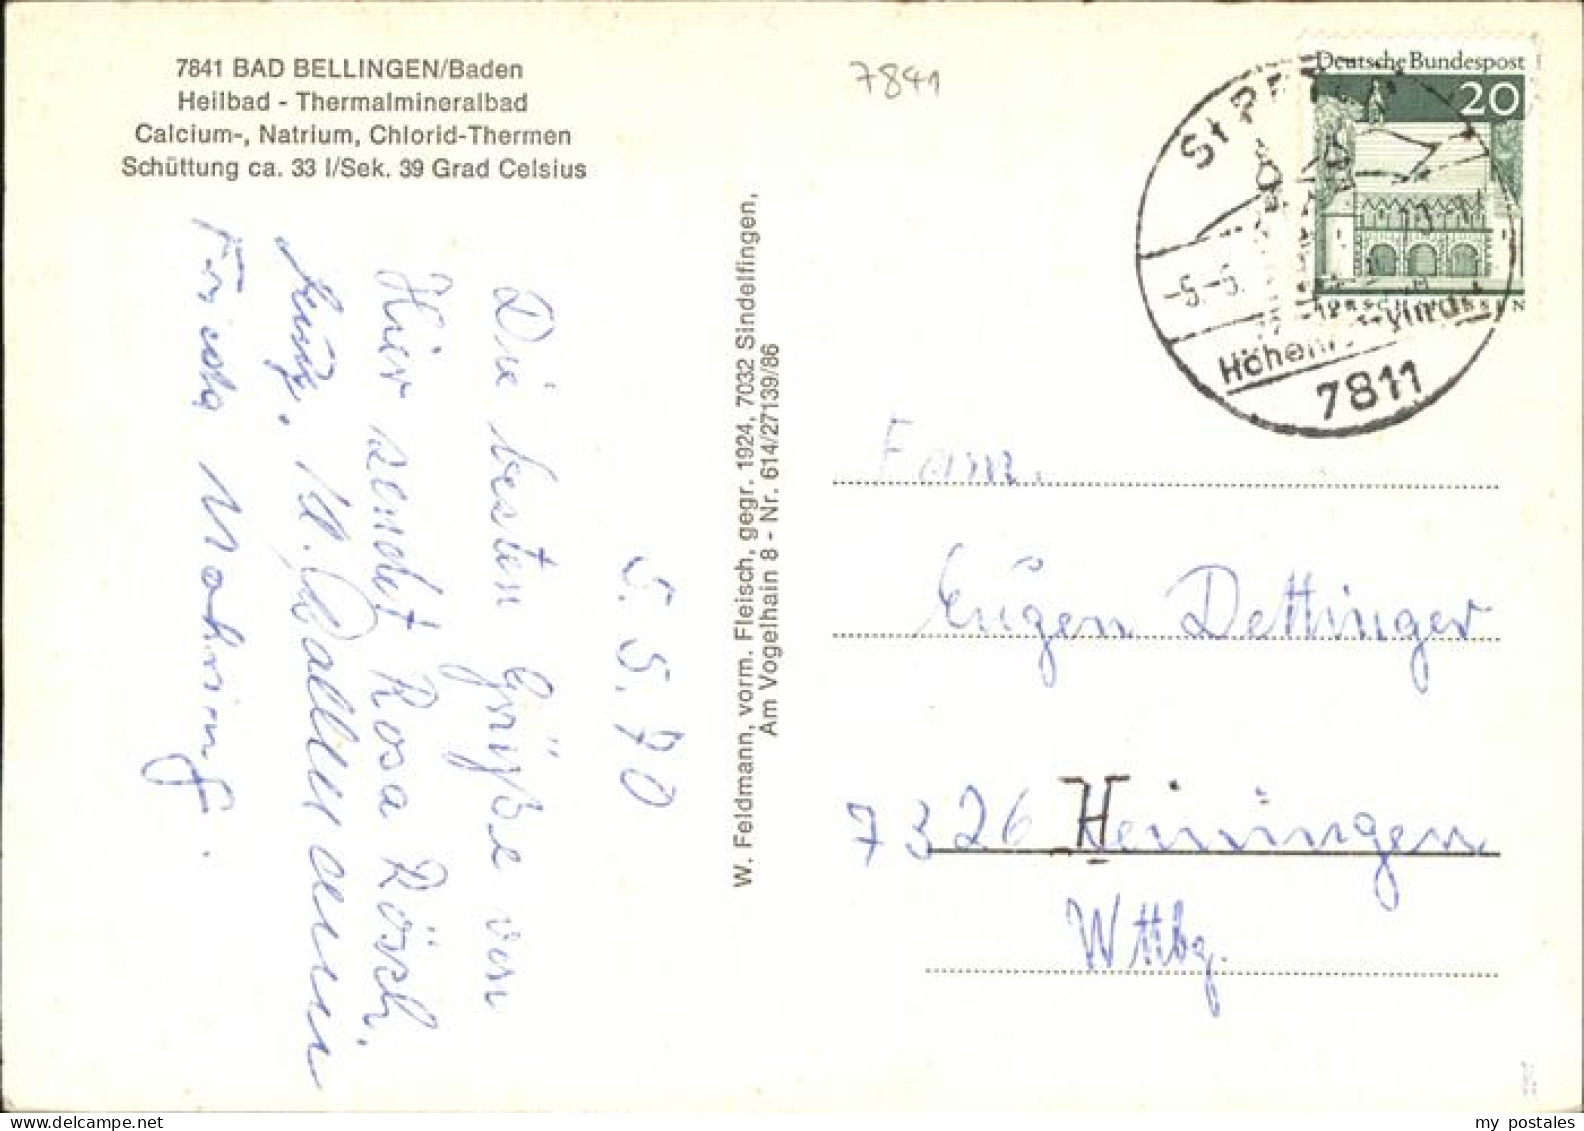 7841 BAD BELLINGEN/Baden
Heilbad - Thermalmineralbad
Calcium-, Natrium, Chlorid-Thermen
Schüttung ca. 33 l/Sek. 39 Grad Celsius
5. 5. 70
Die besten Grüße von
Hier sendet Rosa Rösch.
W. Feldmann, vorm. Fleisch, gegr. 1924, 7032 Sindelfingen,
Am Vogelhain 8 - Nr. 614/27139/86
7841
Deutsche Bundespost
20
St PET
-5.-5.
7811
Fam.
Eugen Dettinger
7326 Heiningen
Wttbg.
my postales